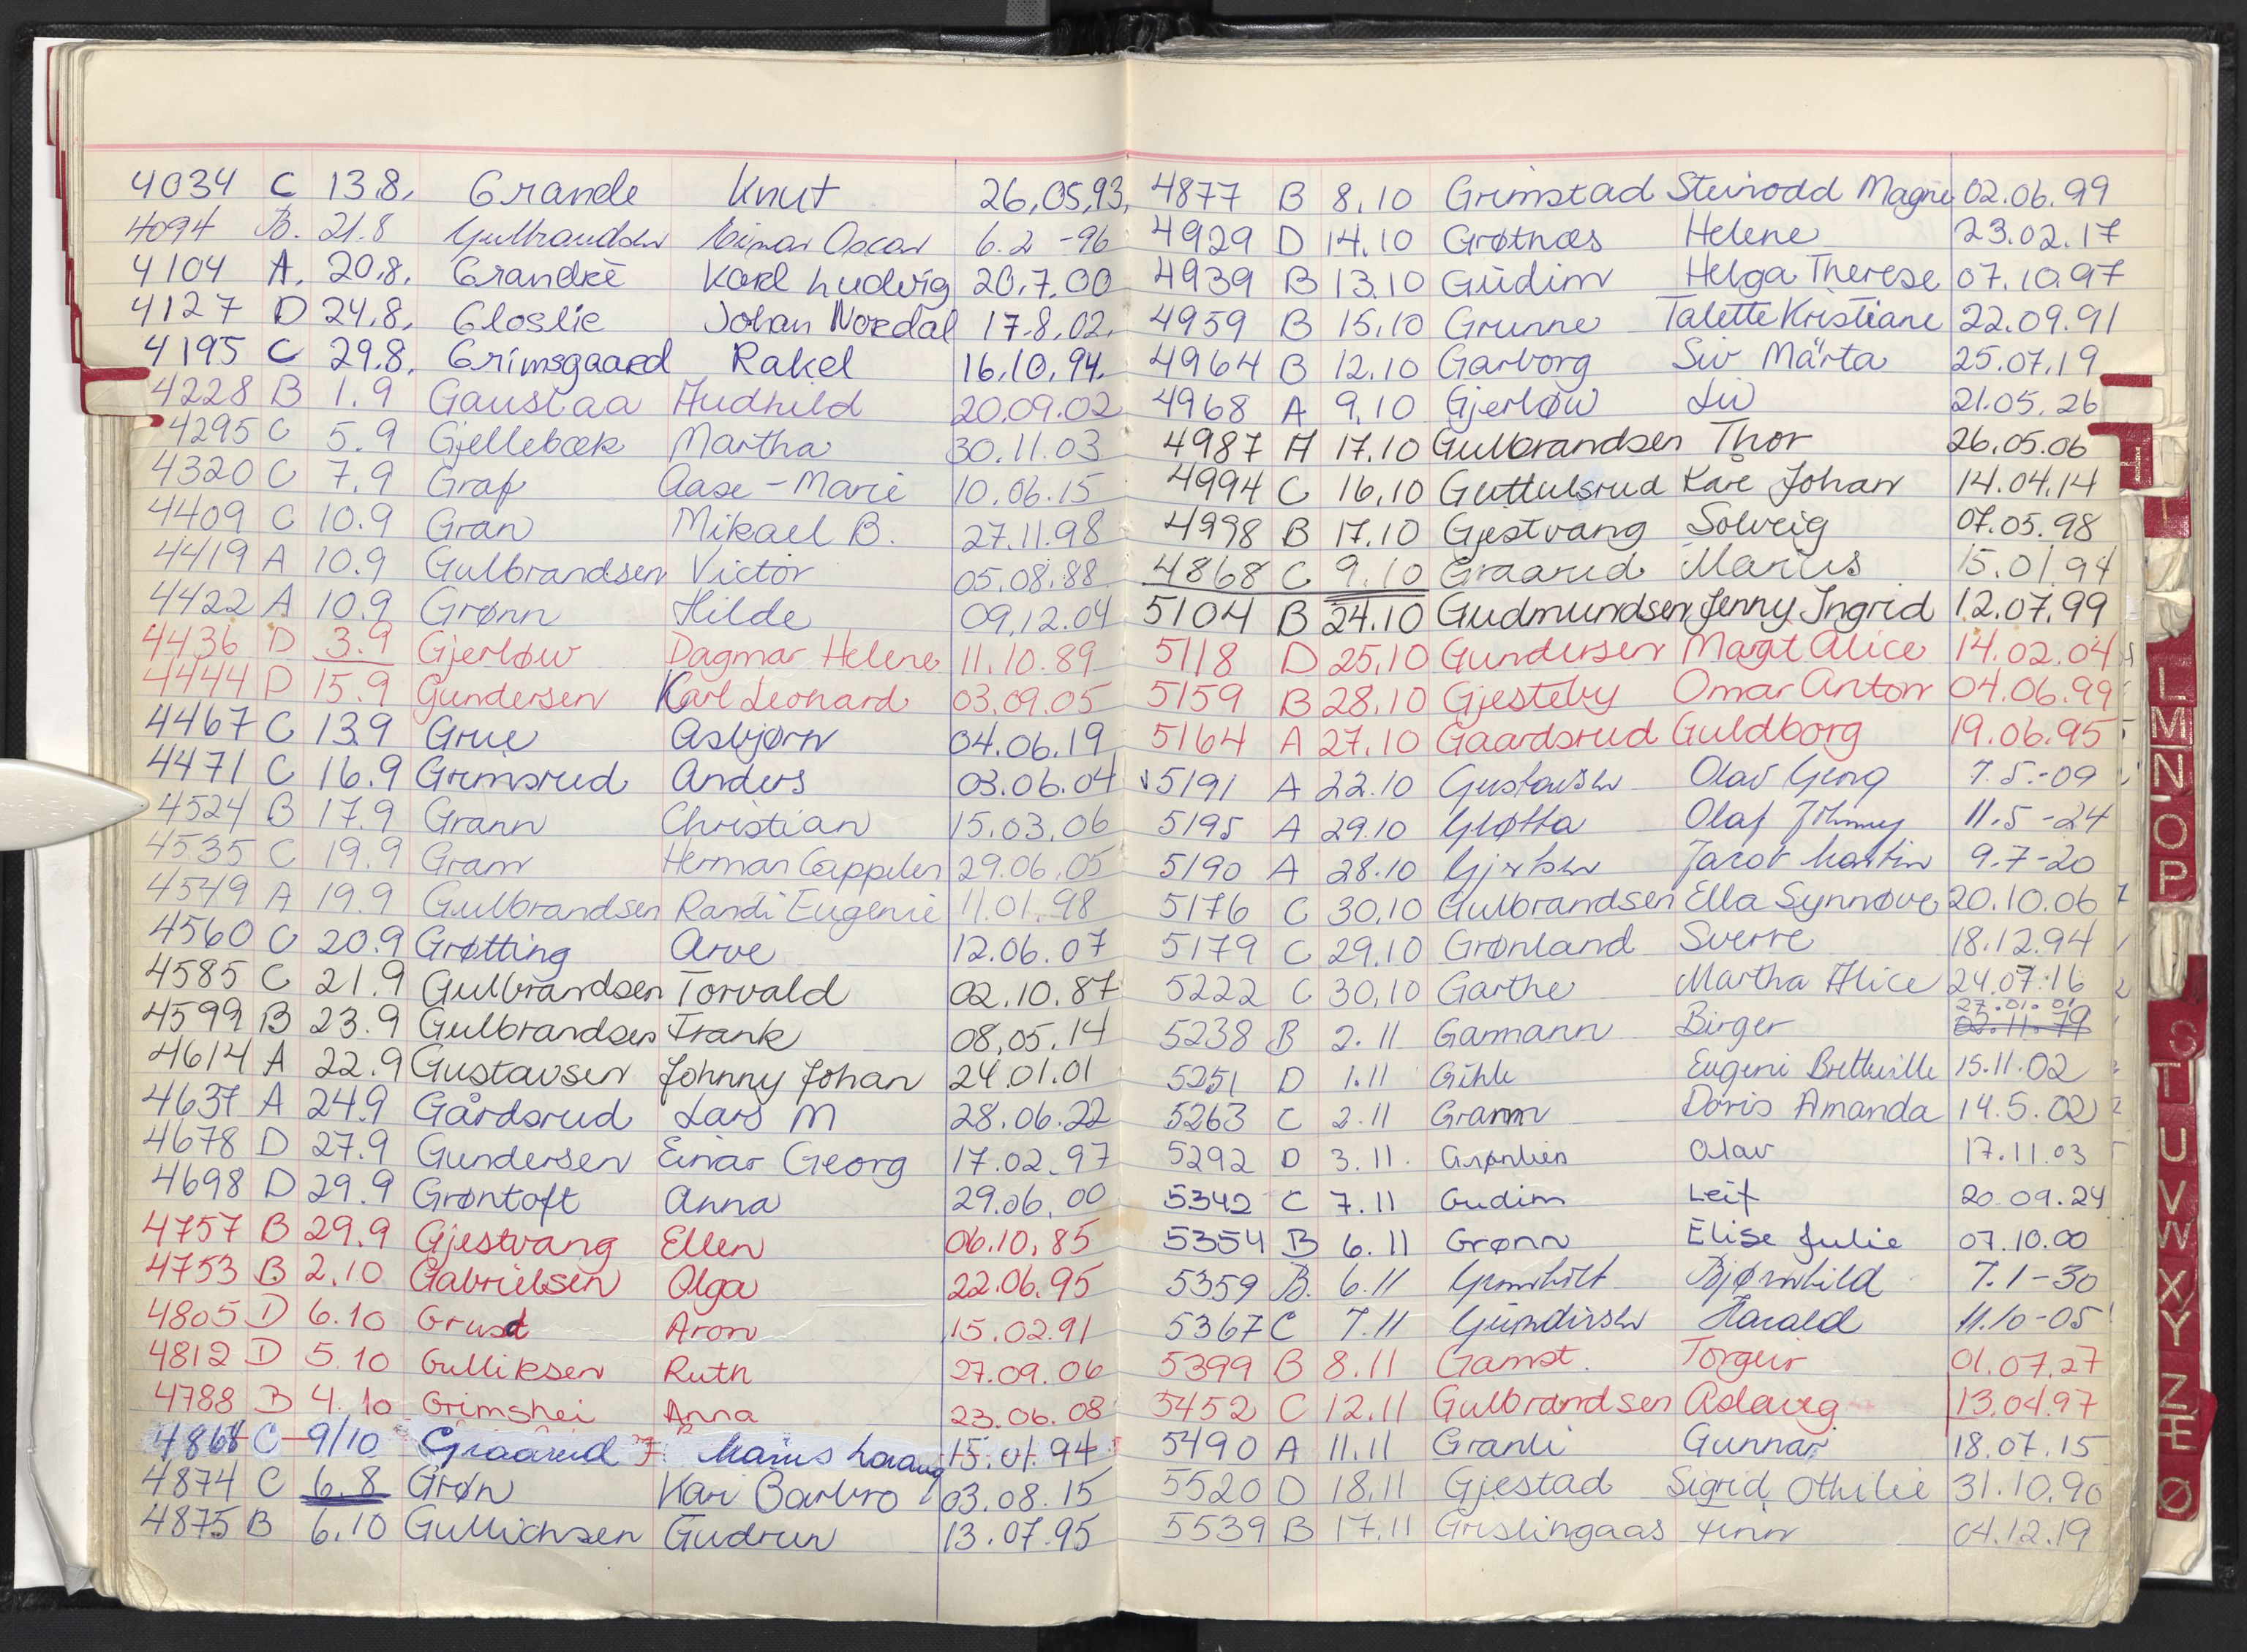 4034 C 13.8. Grande Knut 26.05.93.
4094 B. 21.8 Gulbrandsen Einar Oscar 6.2 -96
4104 A. 20.8. Grandkè Karl Ludvig 20.7.00
4127 D 24.8. Gloslie Johan Nordal 17.8.02.
4195 C 29.8. Grimsgaard Rakel 16.10.94.
4228 B 1.9 Gaustaa Audhild 20.09.02
4295 C 5.9 Gjellebæk Martha 30.11.03
4320 C 7.9 Graf Aase-Marie 10.06.15
4409 C 10.9 Gran Mikael B. 27.11.98
4419 A 10.9 Gulbrandsen Victor 05.08.88
4422 A 10.9 Grønn Hilde 09.12.04
4436 D 3.9 Gjerløw Dagmar Helene 11.10.89
4444 D 15.9 Gundersen Karl Leonard 03.09.05
4467 C 13.9 Grue Asbjørn 04.06.19
4471 C 16.9 Grimsrud Anders 03.06.04
4524 B 17.9 Grann Christian 15.03.06
4535 C 19.9 Gram Herman Cappelen 29.06.05
4549 A 19.9 Gulbrandsen Randi Eugenie 11.01.98
4560 C 20.9 Grøtting Arve 12.06.07
4585 C 21.9 Gulbrandsen Torvald 02.10.87
4599 B 23.9 Gulbrandsen Frank 08.05.14
4614 A 22.9 Gustavsen Johnny Johan 24.01.01
4637 A 24.9 Gårdsrud Lars M 28.06.22
4678 D 27.9 Gundersen Einar Georg 17.02.97
4698 D 29.9 Grøntoft Anna 29.06.00
4757 B 29.9 Gjestvang Ellen 06.10.85
4753 B 2.10 Gabrielsen Olga 22.06.95
4805 D 6.10 Grust Aron 15.02.91
4812 D 5.10 Gulliksen Ruth 27.09.06
4788 B 4.10 Grimshei Anna 23.06.08
4868 C 9/10 Graarud Marius 15.01.94
4874 C 6.8 Grøn Kari Barbro 03.08.15
4875 B 6.10 Gullichsen Gudrun 13.07.95
4877 B 8.10 Grimstad Steinodd Magne 02.06.99
4929 D 14.10 Grøtnæs Helene 23.02.17
4939 B 13.10 Gudim Helga Therese 07.10.97
4959 B 15.10 Grunne Talette Kristiane 22.09.91
4964 B 12.10 Garborg Siv Märta 25.07.19
4968 A 9.10 Gjerløw Liv 21.05.26
4987 A 17.10 Gulbrandsen Thor 26.05.06
4994 C 16.10 Guttulsrud Kåre Johan 14.04.14
4998 B 17.10 Gjestvang Solveig 07.05.98
4868 C 9.10 Graarud Marius 15.01.94
5104 B 24.10 Gudmundsen Jenny Ingrid 12.07.99
5118 D 25.10 Gundersen Margt Alice 14.02.04
5159 B 28.10 Gjesteby Omar Anton 04.06.99
5164 A 27.10 Gaardsrud Guldborg 19.06.95
5191 A 22.10 Gustavsen Olav Georg 7.5.-09
5195 A 29.10 Gløtta Olaf Johnny 11.5-24
5190 A 28.10 Gjertsen Jacob Martin 9.7-20
5176 C 30.10 Gulbrandsen Ella Synnøve 20.10.06
5179 C 29.10 Grønland Sverre 18.12.94
5222 C 30.10 Garthe Martha Alice 24.07.16
27.01.01
5238 B 2.11 Garmann Birger 02.11.79
5251 D 1.11 Gihle Eugeni 15.11.02
5263 C 2.11 Gramm Doris Amanda 14.5.02
5292 D 3.11. Grønlien Olav 17.11.03
5342 C 7.11 Gudim Leif 20.09.24
5354 B 6.11 Grønn Elise Julie 07.10.00
5359 B. 6.11 Grimholt Bjørnhild 7.1-30
5367 C 7.11 Gundersen Harald 11.10-05
5399 B 8.11 Gamst. Torgeir 01.07.27
5452 C 12.11 Gulbrandsen Aslaug 13.04.97
5490 A 11.11 Granli Gunnar 18.07.15
5520 D 18.11 Gjestad Sigrid Othilie 31.10.90
5539 B 17.11 Grislingaas Finn 04.12.19
H
I
L
M
N
O
P
S
T
U
V
W
X
Y
Z
Æ
Ø